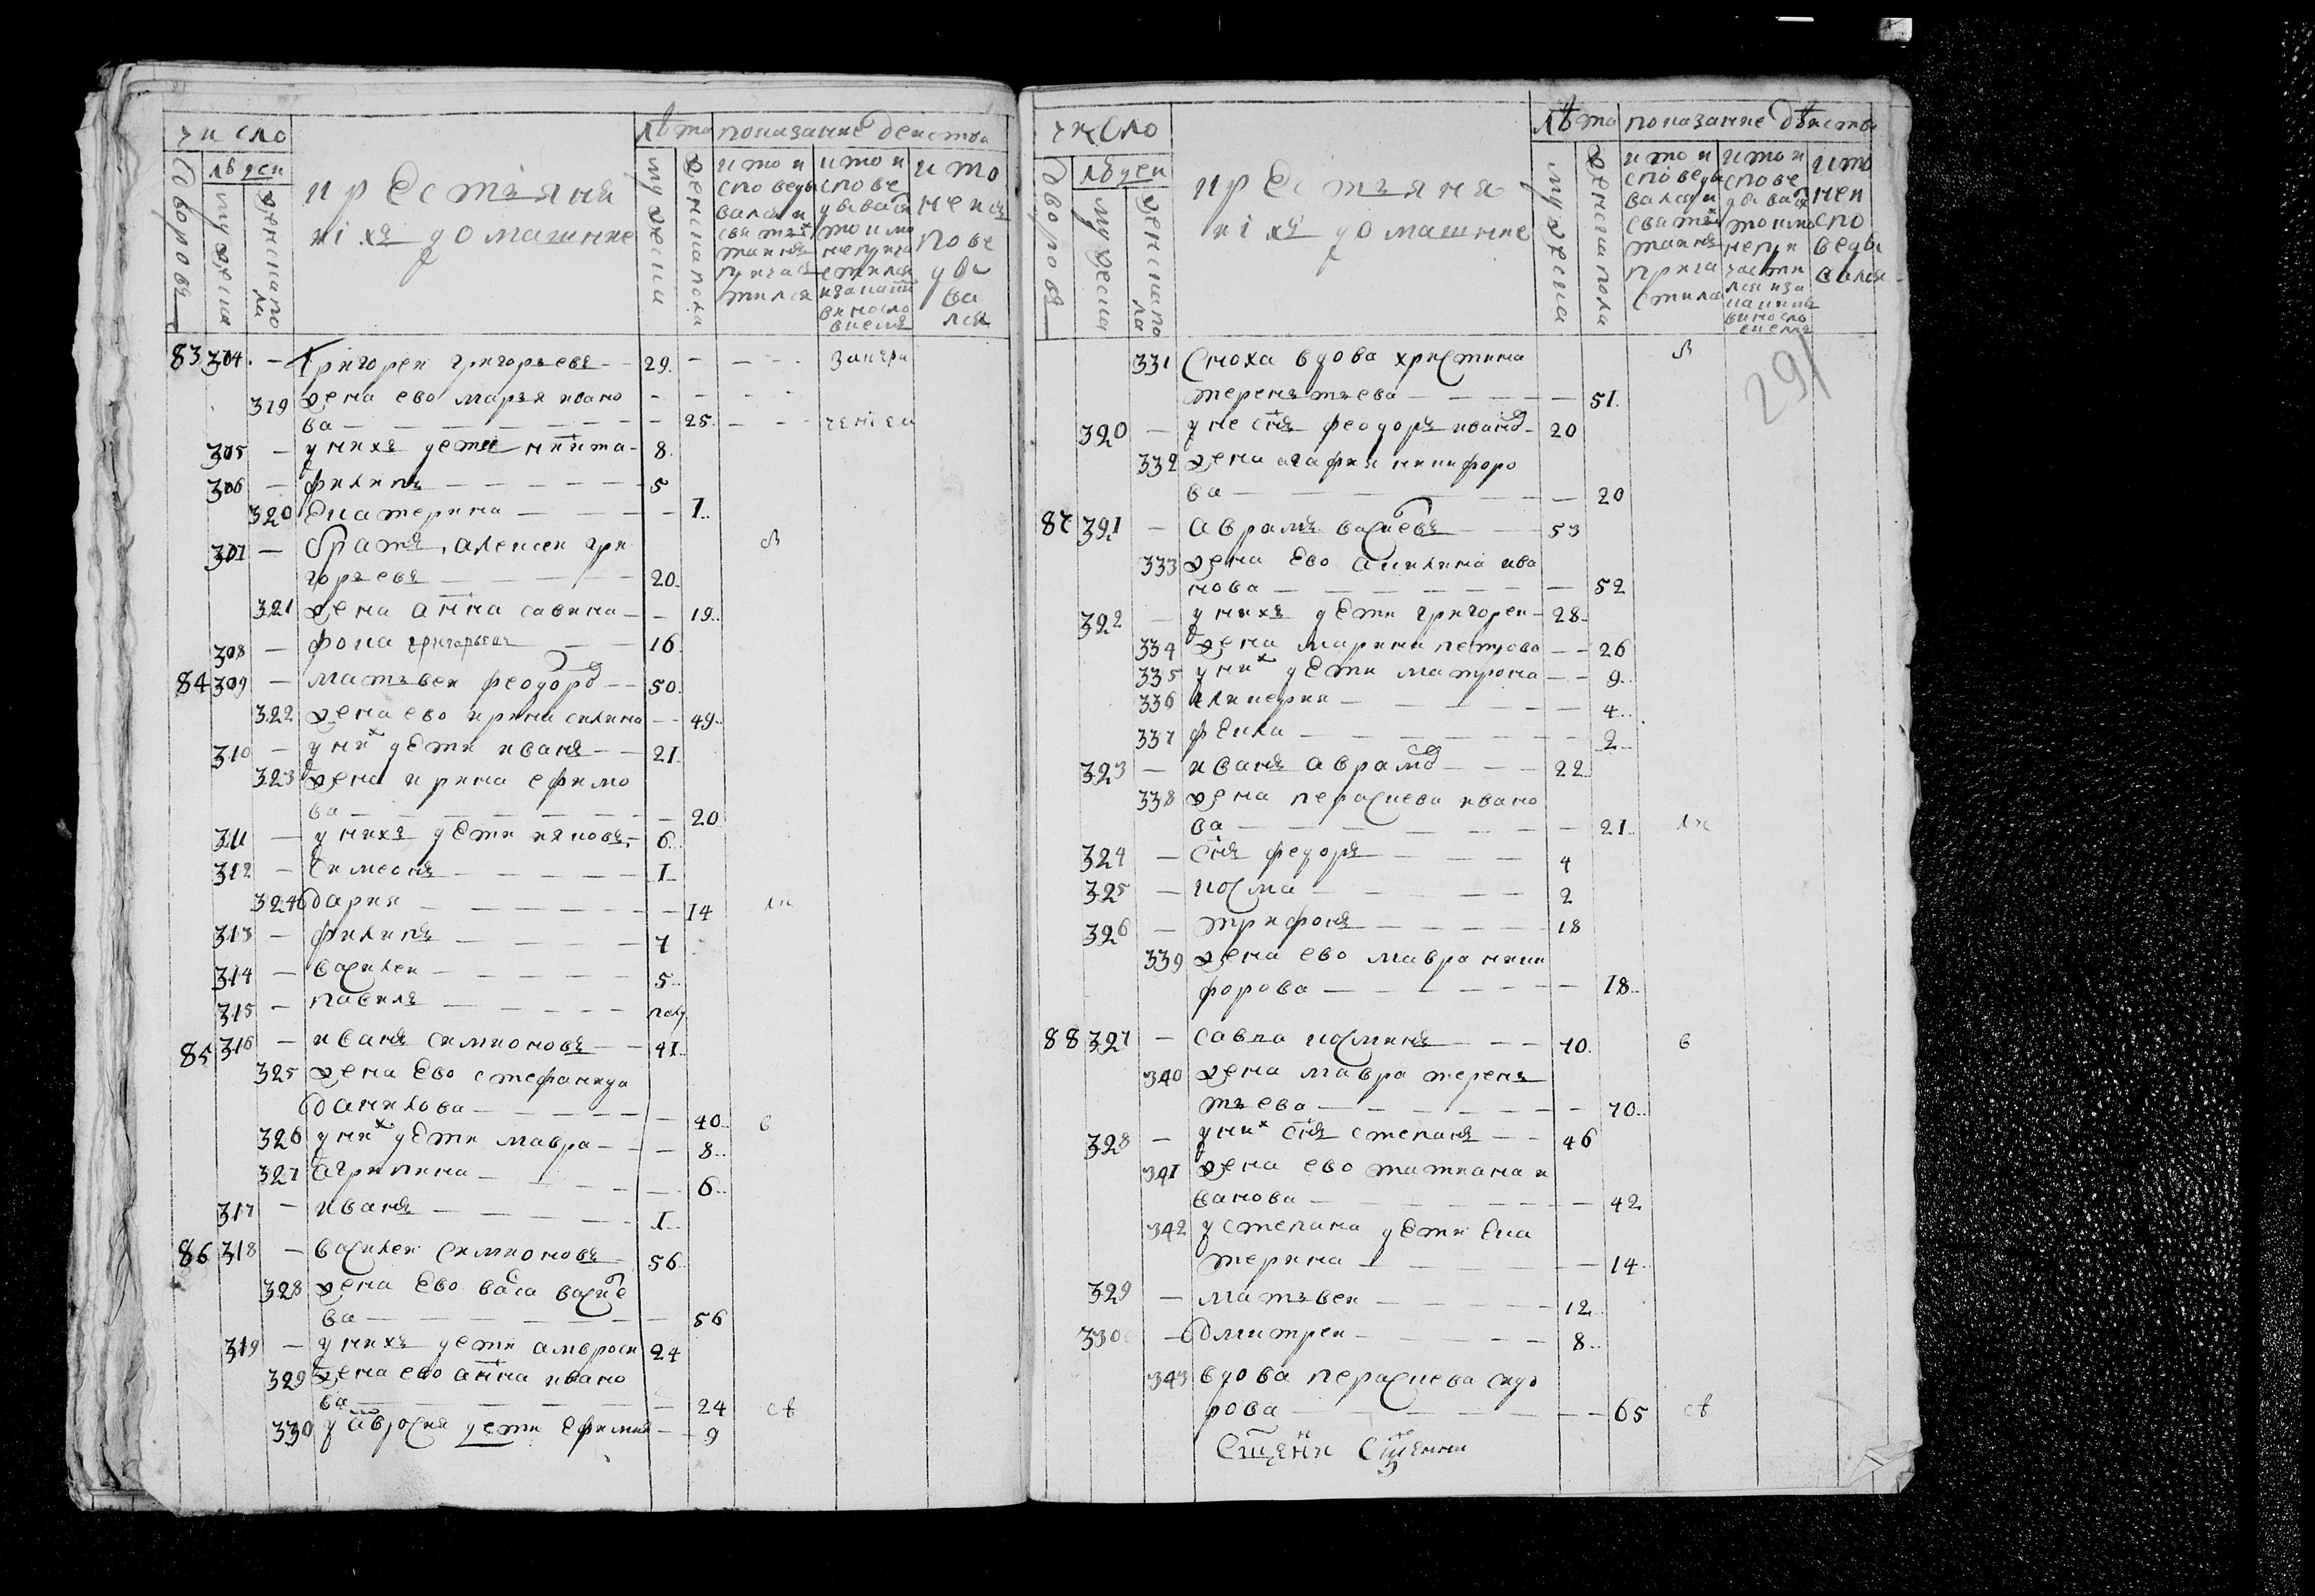 число
лѣта показание действа
дворовъ
людей
мужеска
женска пола
крестьяня
и ихъ домашние
мужеска
женска пола
кто и
споведы
вался и
святыхъ
таинъ
причас
тился
кто и
спове
дывался
токмо
не прича
стился
и за каким
виносло
виемъ
кто
не ис
пове
ды
ва
лся
83 304 — Григореи григорьевъ — 29 — — занере
319 жена ево марья ивано
ва — 25 — чением
305 — у нихъ дети никита — 8
306 — филипъ — 5
320 Екатерина — 1
307 — братъ алексеи гри
горьевъ — 20
321 жена анна савина — 19
308 — фока григорьевъ — 16
84 309 — матвеи феодоров — 50
322 жена ево ирина силина — 49
310 — у них дети иванъ — 21
323 жена ирина ефимо
ва — 20
311 — у нихъ дети ияковъ — 6
312 — Симеонъ — 1
324 дария — 14
313 — филипъ — 7
314 — василеи — 5
315 — павелъ — пол
85 316 — иванъ симионовъ — 41
325 жена Ево стефанида
данилова — 40 в
326 у них дети мавра — 8
327 агрипина — 6
317 — иванъ — 1
86 318 — василеи симионовъ 56
328 жена Ево васа василе
ва — 56
319 — у нихъ дети амвроси 24
329 жена ево анна ивано
ва — 24
330 у авросия дети Ефимия — 9
число
лѣта показание дѣиства
дворовъ
людеи
мужеска
женска по
ла
крестьяня
и ихъ домашние
мужеска
женска пола
кто и
споведы
вался и
святых
таинъ
прича
стился
кто и
спове
дывался
токмо
не при
части
лся и за
каким
виносло
виемъ
кто
не и
спо
веды
вался
291
331 Сноха вдова христина
терентьева — 51
320 — у не снъ феодоръ иванов — 20
332 жена агафия никифоро
ва — 20
87 321 — аврамъ василевъ — 53
333 жена Ево акилина ива
нова — 52
322 — у нихъ дети григореи — 28
334 жена марина петрова — 26
335 у них дети матрона — 9
336 гликерия — 4
337 фекла — 2
323 — иванъ аврамов — 22
338 жена параскева ивано
ва — 21
324 — снъ федоръ — 4
325 — косма — 2
326 — трифонъ — 18
339 жена ево мавра ники
форова — 18
88 327 — савва косминъ — 70 в
340 жена мавра терен
тьева — 70
328 — у них снъ степанъ — 46
341 жена ево татиана и
ванова — 42
342 у степана дети Ека
терина — 14
329 — матвеи — 12
330 — дмитреи — 8
343 вдова параскева сидо
рова — 65